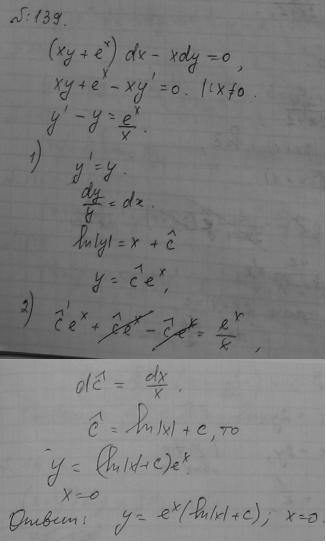 №:139.
(xy + eˣ) dx - xdy = 0,
xy + eˣ - xy' = 0. |(x≠0.
y' - y = eˣ/x.
1) y' = y.
dy/y = dx.
ln|y| = x + ĉ
y = ĉ eˣ,
2) ĉ' eˣ + ĉ eˣ - ĉ eˣ = eˣ/x,
dĉ = dx/x.
ĉ = ln|x| + c, то
y = (ln|x| + c) eˣ.
x = 0
Ответ: y = eˣ (ln|x| + c); x = 0.